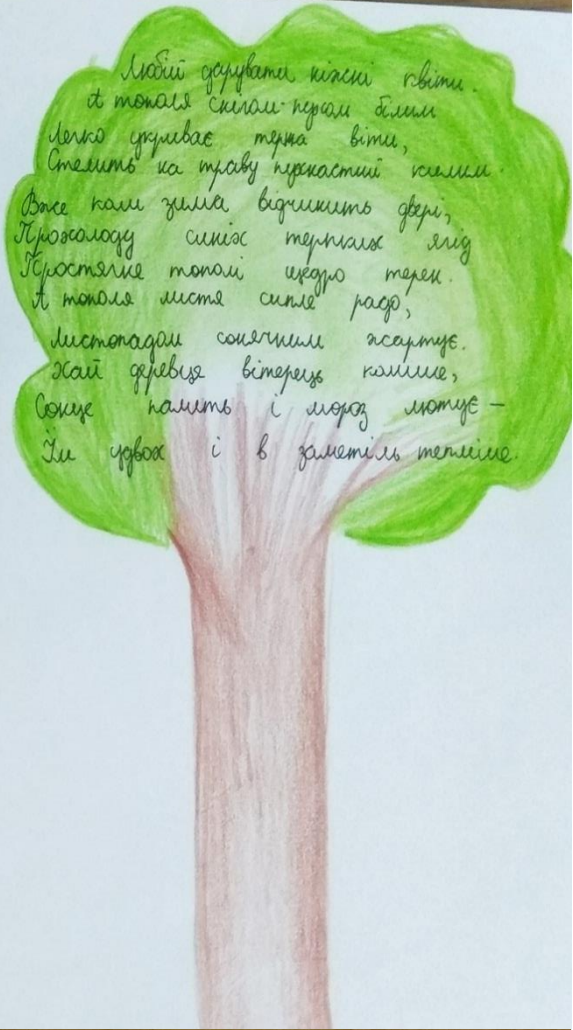 Любій дарувати ніжні квіти.
А тополя снігом-пухом білим
Легко укриває терна віти,
Стелить на траву пухнастий килим.
Вже коли зима відчинить двері,
Прохолоду синіх терпких ягід
Простягне тополі щедро терен.
А тополя листя сипле радо,
Листопадом сонячним жартує.
Хай деревця вітерець колише,
Сонце палить і мороз лютує –
Їм удвох і в заметіль тепліше.